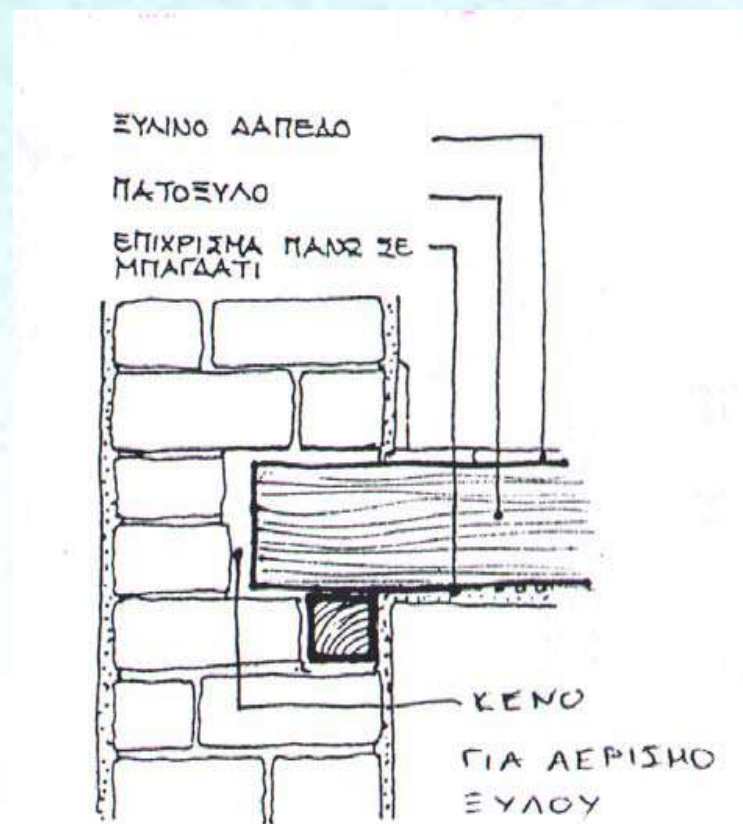 ΞΥΛΙΝΟ ΔΑΠΕΔΟ
ΠΑΤΟΞΥΛΟ
ΕΠΙΧΡΙΣΜΑ ΠΑΝΩ ΣΕ
ΜΠΑΓΔΑΤΙ
ΚΕΝΟ
ΓΙΑ ΑΕΡΙΣΜΟ
ΞΥΛΟΥ